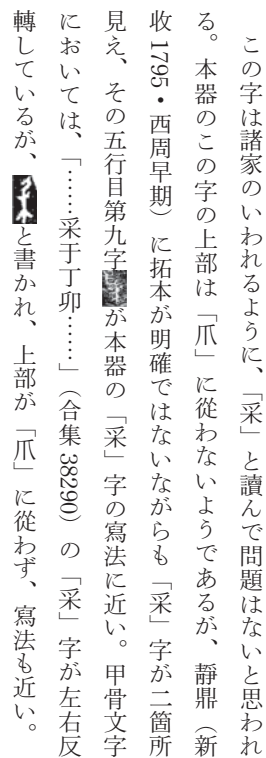 この字は諸家のいわれるように、「采」と讀んで問題はないと思われ
る。本器のこの字の上部は「爪」に從わないようであるが、靜鼎（新
收1795・西周早期）に拓本が明確ではないながらも「采」字が二箇所
見え、その五行目第九字が本器の「采」字の寫法に近い。甲骨文字
においては、「……采于丁卯……」（合集38290）の「采」字が左右反
轉しているが、と書かれ、上部が「爪」に從わず、寫法も近い。